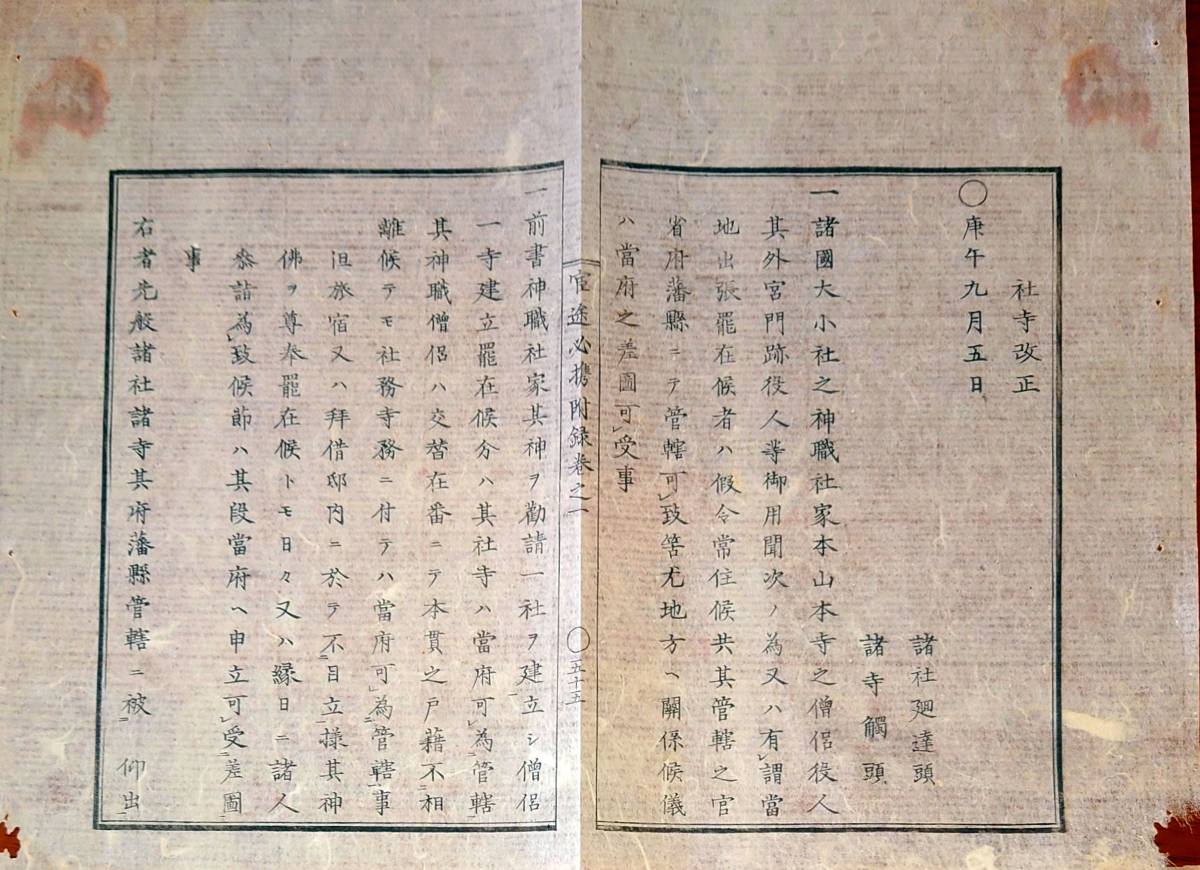 社寺改正
〇庚午九月五日
諸社廻達頭
諸寺觸頭
一諸國大小社之神職社家本山本寺之僧侶役人
其外宮門跡役人等御用聞次ノ為又ハ有レ謂當
地出張罷在候者ハ假令常住候共其管轄之官
省府藩縣ニテ管轄可レ致筈尤地方ヘ關係候儀
ハ當府之差圖可レ受事
官途必携附録卷之一
〇五十五
一前書神職社家其神ヲ勸請一社ヲ建立シ僧侶
一寺建立罷在候分ハ其社寺ハ當府可レ為二管轄一
其神職僧侶ハ交替在番ニテ本貫之戸籍不二相
離一候テモ社務寺務ニ付テハ當府可レ為二管轄一事
但旅宿又ハ拜借邸内ニ於テ不二目立一樣其神
佛ヲ尊奉罷在候トモ日々又ハ縁日ニ諸人
參詣為レ致候節ハ其段當府ヘ申立可レ受二差圖一
事
右者先般諸社諸寺其府藩縣管轄ニ被二 仰出一